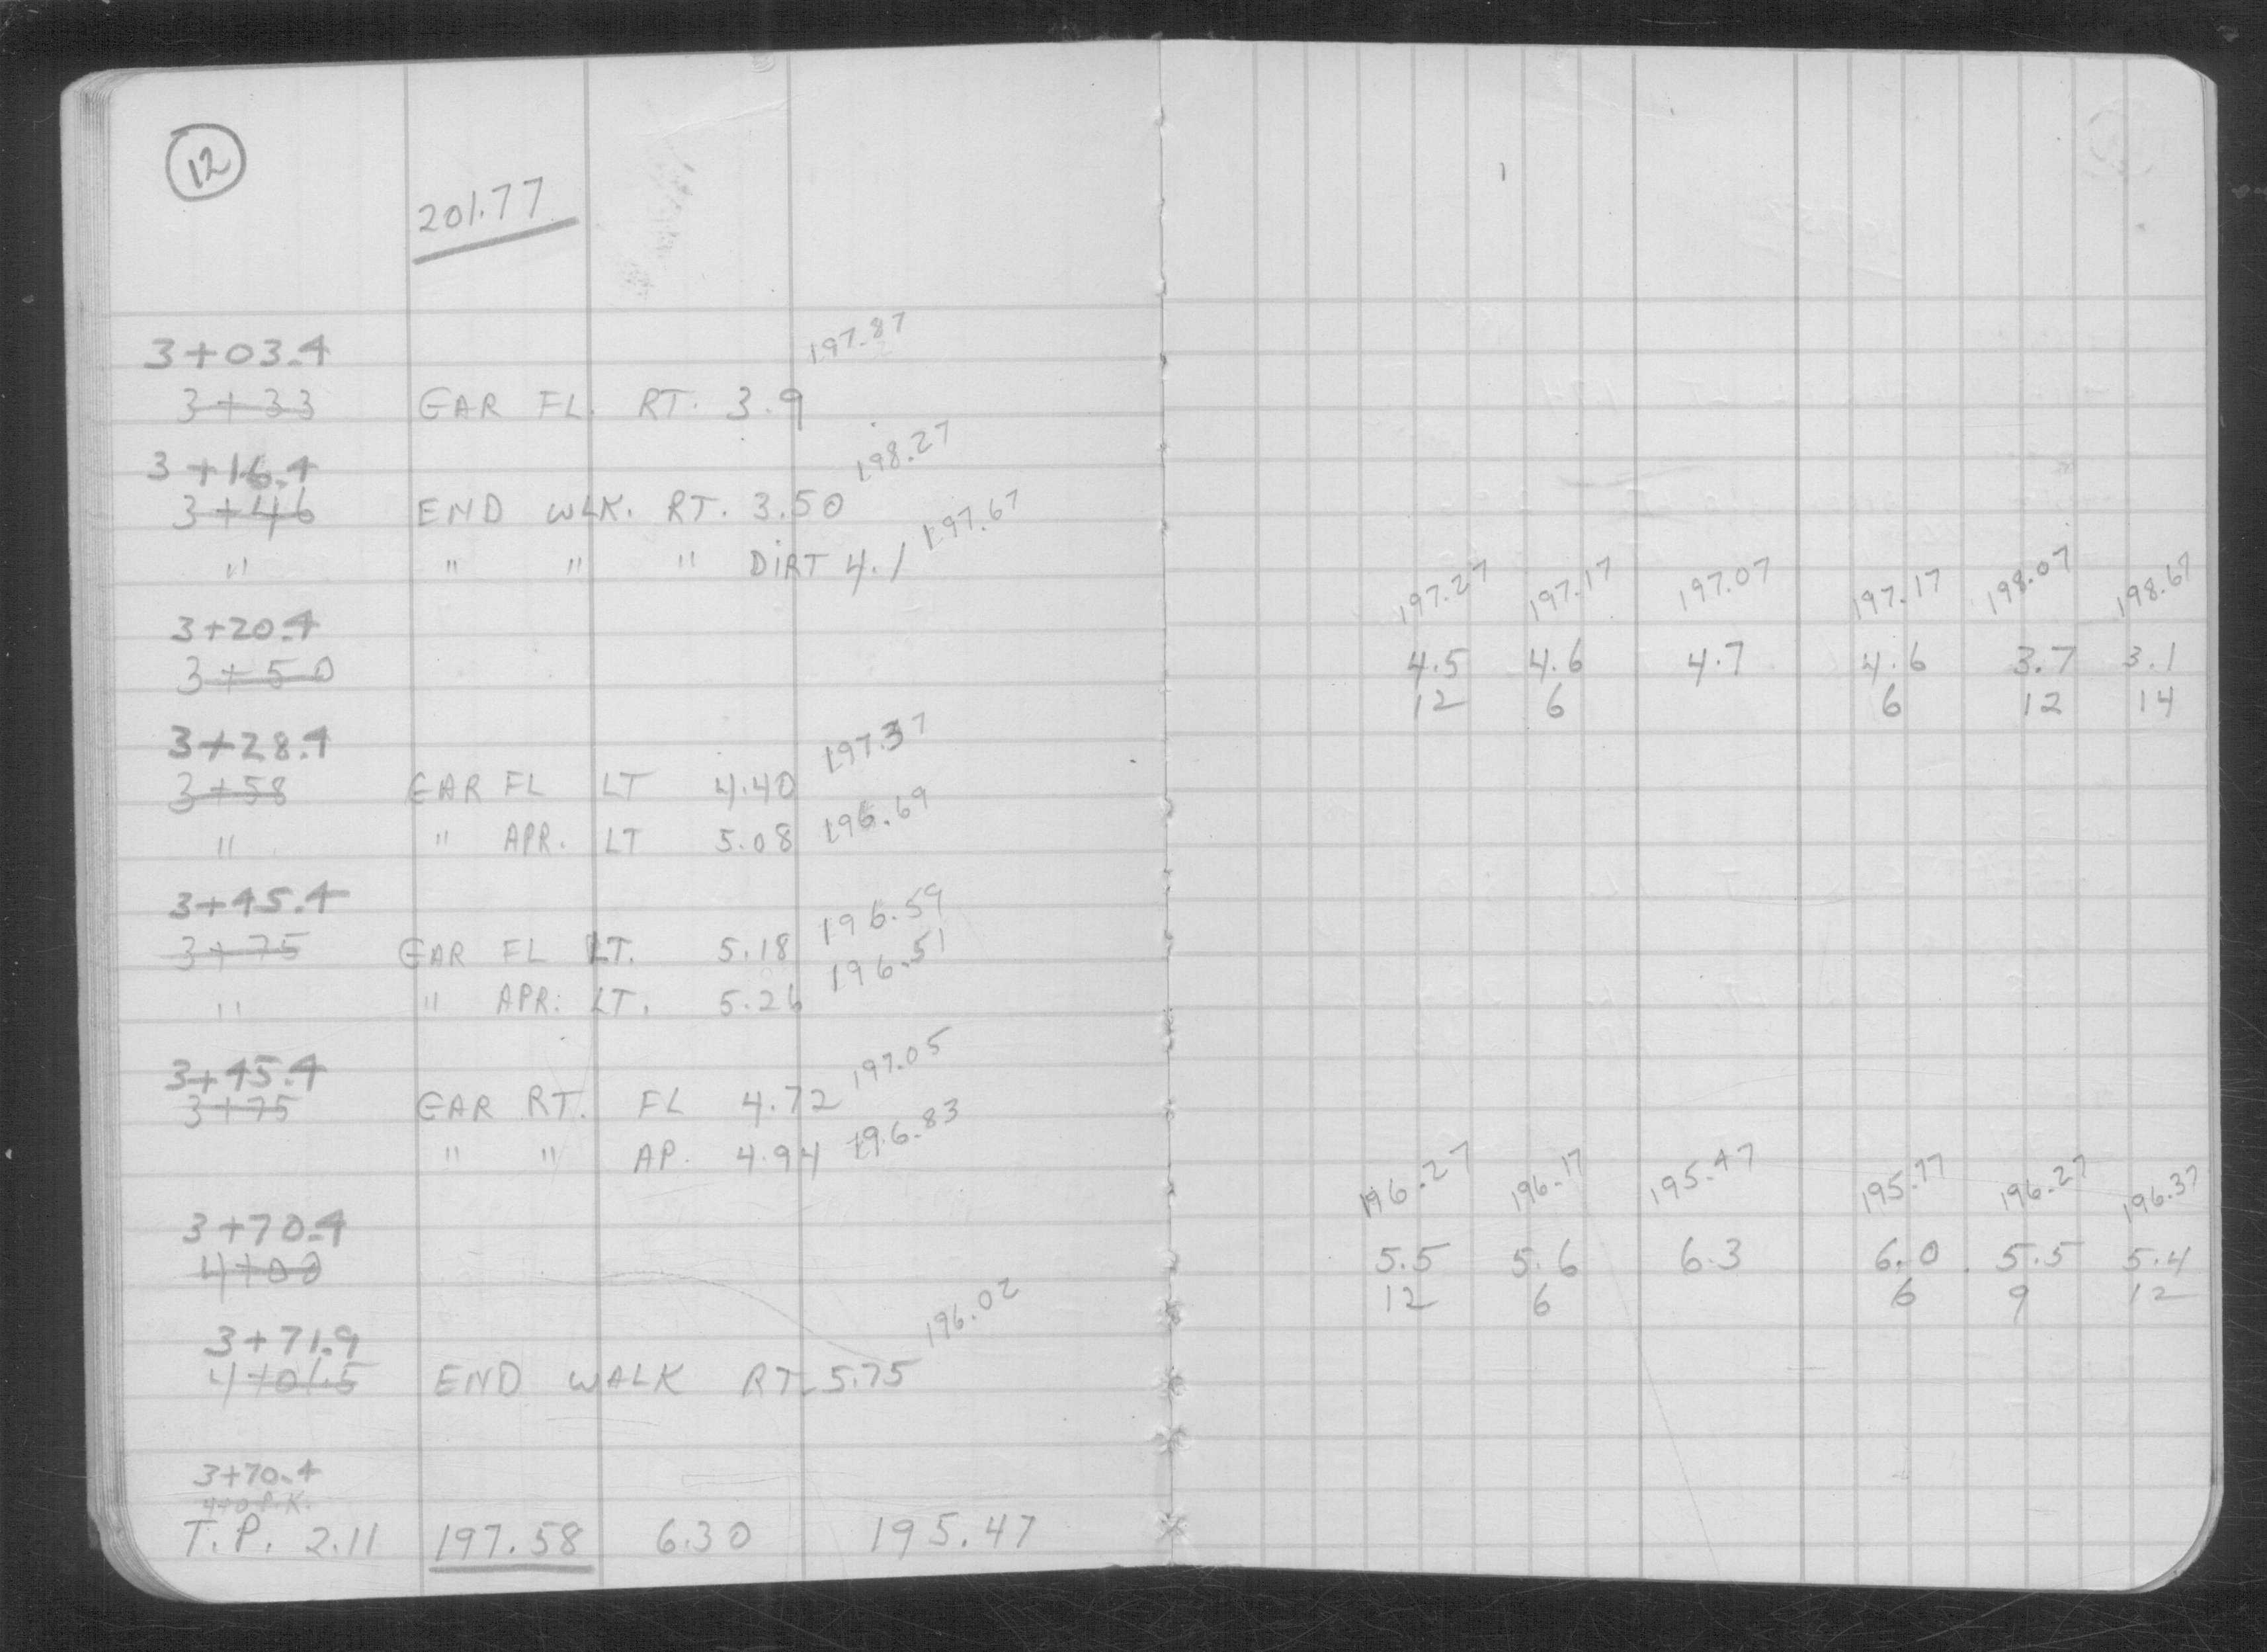 12
201.77
3+03.4 197.87
3+33 GAR FL. RT. 3.9
3+16.4 198.27
3+46 END WLK. RT. 3.50
" " " " DIRT 4.1 197.67
3+20.4
3+50
3+28.4 197.37
3+58 GAR FL LT 4.40
" " APR. LT 5.08 196.69
3+45.4 196.59
3+75 GAR FL LT. 5.18
" " APR. LT. 5.26 196.51
3+45.4 197.05
3+75 GAR RT. FL 4.72
" " AP. 4.94 196.83
3+70.4
4+00
3+71.9 196.02
4+01.5 END WALK RT. 5.75
3+70.4
T.P. 2.11 197.58 6.30 195.47
197.27 197.17 197.07 197.17 198.07 198.67
4.5 4.6 4.7 4.6 3.7 3.1
12 6 6 12 14
196.27 196.17 195.47 195.77 196.27 196.37
5.5 5.6 6.3 6.0 5.5 5.4
12 6 6 9 12